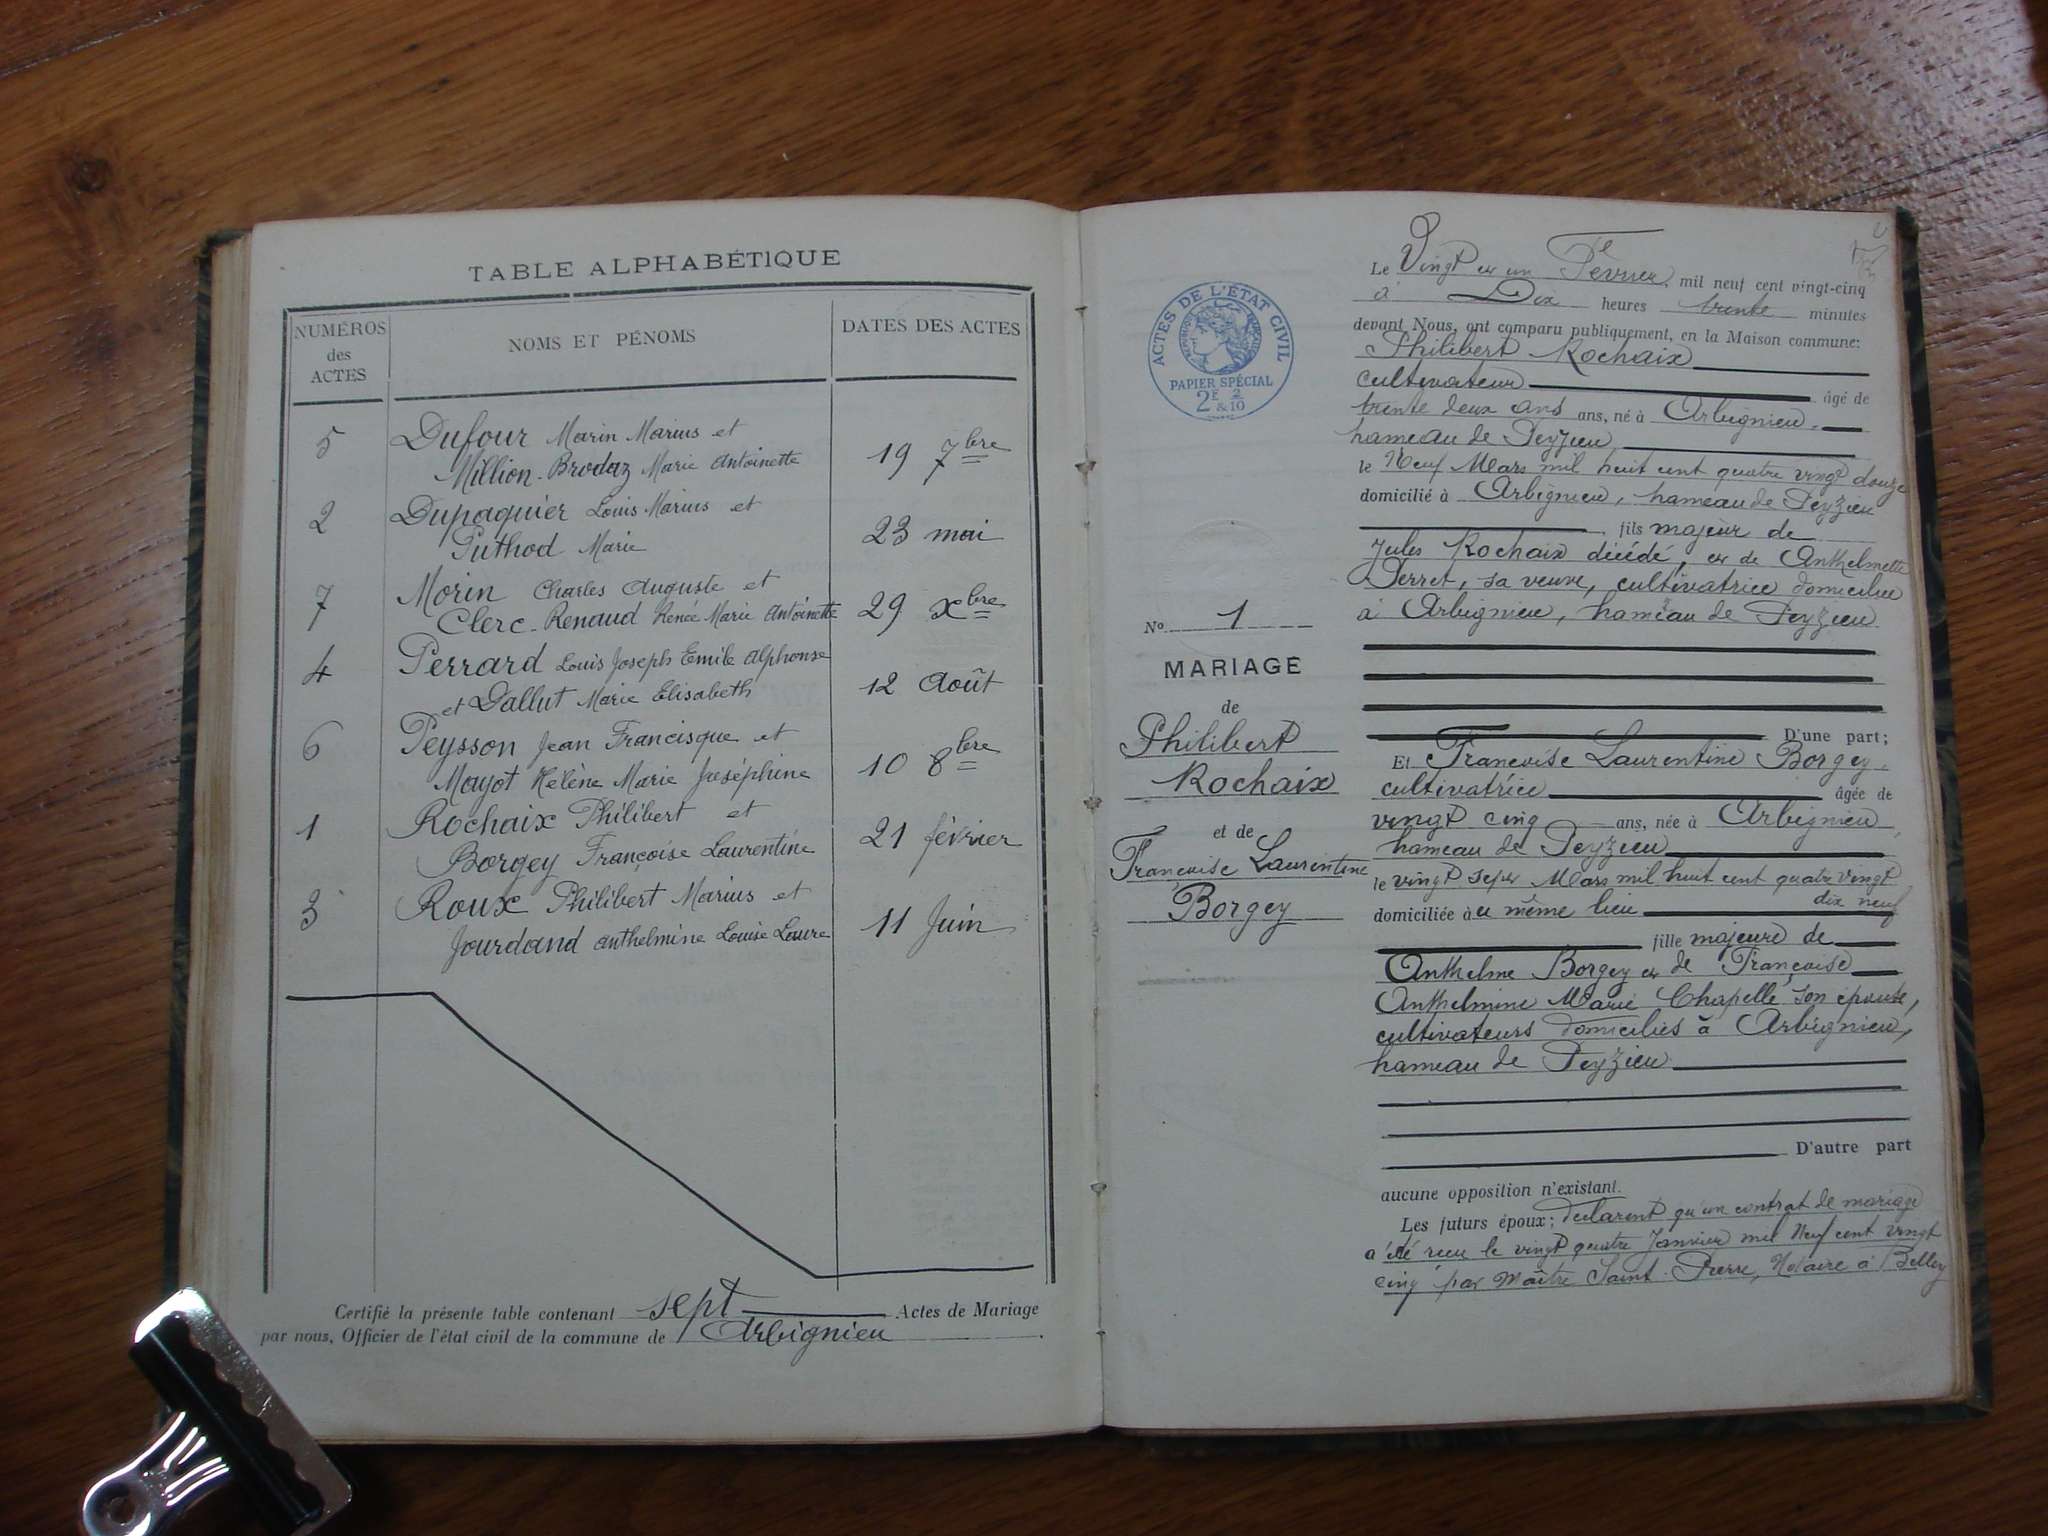 TABLE ALPHABÉTIQUE
NUMÉROS
des
ACTES
NOMS ET PÉNOMS
DATES DES ACTES
5 Dufour Marin Marius et
Million-Brodaz Marie Antoinette 19 7bre
2 Dupaquier Louis Marius et
Puthod Marie 23 mai
7 Morin Charles Auguste et
Clerc-Renaud Renée Marie Antoinette 29 xbre
4 Perrard Louis Joseph Emile Alphonse
et Dallut Marie Elisabeth 12 Août
6 Peysson Jean Francisque et
Mayot Hélène Marie Joséphine 10 8bre
1 Rochaix Philibert et
Borgey Françoise Laurentine 21 février
3 Roux Philibert Marius et
Jourdand Anthelmine Louise Laure 11 Juin
Certifié la présente table contenant sept Actes de Mariage
par nous, Officier de l'état civil de la commune de Arbignieu
ACTES DE L'ÉTAT CIVIL
RÉPUBLIQUE FRANÇAISE
PAPIER SPÉCIAL
2E 2
&10
No 1
MARIAGE
de
Philibert
Rochaix
et de
Francoise Laurentine
Borgey
Le Vingt et un Février, mil neuf cent vingt-cinq
à Dix heures trente minutes
devant Nous, ont comparu publiquement, en la Maison commune:
Philibert Rochaix
cultivateur âgé de
trente deux ans ans, né à Arbignieu,
hameau de Peyzieu
le Neuf Mars mil huit cent quatre vingt douze
domicilié à Arbignieu, hameau de Peyzieu
fils majeur de
Jules Rochaix décédé, et de Anthelmette
Perret, sa veuve, cultivatrice domiciliée
à Arbignieu, hameau de Peyzieu
D'une part;
Et Francoise Laurentine Borgey,
cultivatrice âgée de
vingt cinq ans, née à Arbignieu,
hameau de Peyzieu
le vingt sept Mars mil huit cent quatre vingt
dix neuf
domiciliée à u même lieu
fille majeure de
Anthelme Borgey et de Françoise
Anthelmine Marie Chapelle, son épouse,
cultivateurs domiciliés à Arbignieu,
hameau de Peyzieu
D'autre part
aucune opposition n'existant.
Les futurs époux; declarent qu'un contrat de mariage
a été recu le vingt quatre Janvier mil Neuf cent vingt
cinq par Maître Saint-Pierre, Notaire à Belley